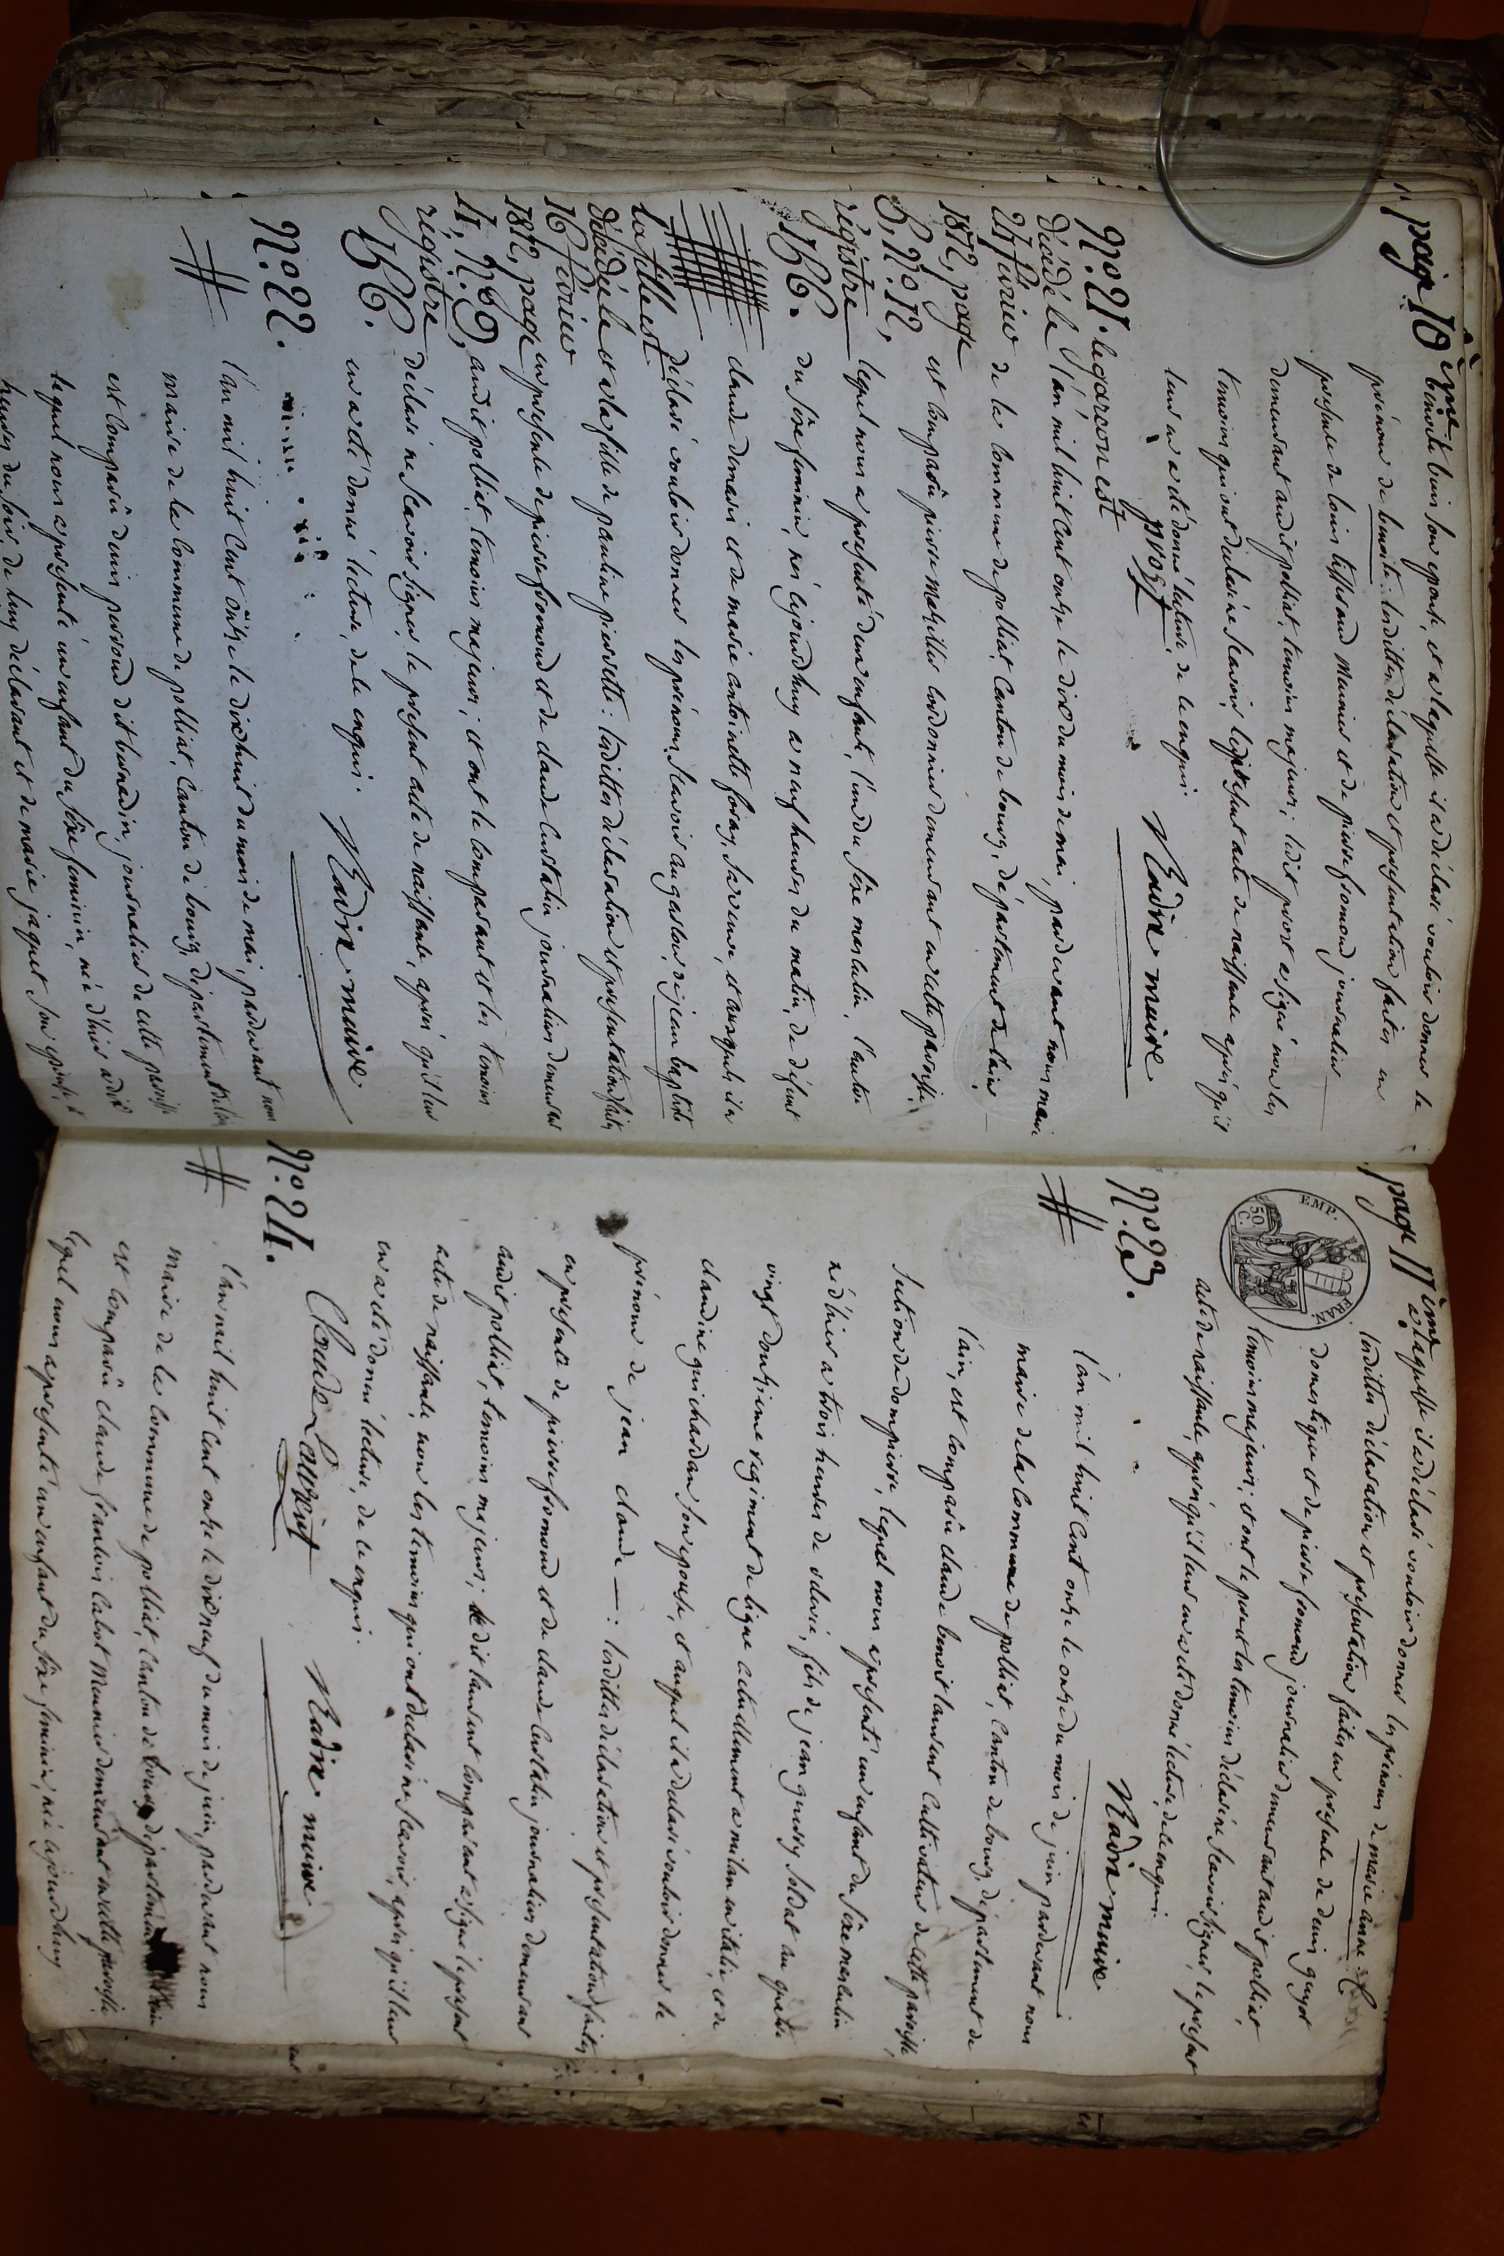 page 10ème
benoite buis son epouse, et a laquelle il a déclaré vouloir donner le
prénom de benoite: lesdittes déclaration et presentation faites en
presence de louis tisserand meunier et de pierre fromond journalier
demeurant audit polliat, temoins majeurs; ledit provost a signé non les
temoins qui ont déclaré ne scavoir, le présent acte de naissance après qu'il
leur en a été donné lecture, de ce enquis.
provst Nadin maire
N.º 21. le garcon est
décédé le
24 fevrier
1812, page
3, N.º 12,
régistre
166.
la fille est
décédée le
16 février
1812, page
4, N.º 9,
régistre
166.
l'an mil huit cent onze le dix du mois de mai, pardevant nous maire
de la commune de polliat, canton de bourg, département de l'ain
est comparu pierre mathillier cordonnier demeurant en cette paroisse,
lequel nous a presenté deux enfants, l'un du séxe masculin, l'autre
du séxe feminin, nés cejourdhuy a neuf heures du matin, de défunt
claude demarie et de marie antoinette foray, servine, et auxquels il a
déclaré vouloir donner les prénoms, scavoir au garcon, de jean baptiste
et a la fille de pauline pierrette: lesdittes déclaration et presentation faites
en presence de pierre fromond et de claude custallin journaliers demeurant
audit polliat, temoins majeurs; et ont le comparant et les temoins
déclaré ne scavoir signer le present acte de naissance, après qu'il leur
en a été donné lecture, de ce enquis.
Nadin maire
N.º 22.
l'an mil huit cent onze le dix huit du mois de mai, pardevant nous
maire de la commune de polliat, canton de bourg, département de l'ain
est comparu denis perroud dit bernardin, journalier de cette paroisse
lequel nous a presenté un enfant du séxe feminin, né d'hier a dix
heures du soir, de luy déclarant et de marie jaquet son epouse, et
page 11ème
EMP. FRA.
50 C.
a laquelle il a déclaré vouloir donner les prénoms de marie anne:
lesdittes déclaration et presentation faites en presence de denis guyot
domestique et de pierre fromond journalier demeurant audit polliat,
temoins majeurs; et ont le pere et les temoins déclaré ne scavoir signer, le present
acte de naissance, après qu'il leur en a été donné lecture, de ce enquis.
Nadin maire
N.º 23.
l'an mil huit cent onze le onze du mois de juin pardevant nous
maire de la commune de polliat, canton de bourg, département de
l'ain, est comparu claude benoit laurent cultivateur de cette paroisse,
section de dompierre, lequel nous a presenté un enfant du séxe masculin
né d'hier a trois heures du soir, fils de jean guerry soldat au quatre
vingt douzieme regiment de ligne actuellement a milan en italie, et de
claudine guichardan son epouse, et auquel il a déclaré vouloir donner le
prénom de jean claude: lesdittes déclaration et presentation faites
en presence de pierre fromond et de claude custallin journaliers demeurant
audit polliat, temoins majeurs; ledit laurent comparant a signé le present
acte de naissance, non les temoins qui ont déclaré ne scavoir, après qu'il leur
en a été donné lecture, de ce enquis.
Claude Laurent Nadin maire
N.º 24.
l'an mil huit cent onze le dix neuf du mois de juin, pardevant nous
maire de la commune de polliat, canton de bourg, département de l'ain
est comparu claude francois cabut meunier demeurant en cette paroisse
lequel nous a presenté un enfant du séxe feminin, né cejourdhuy